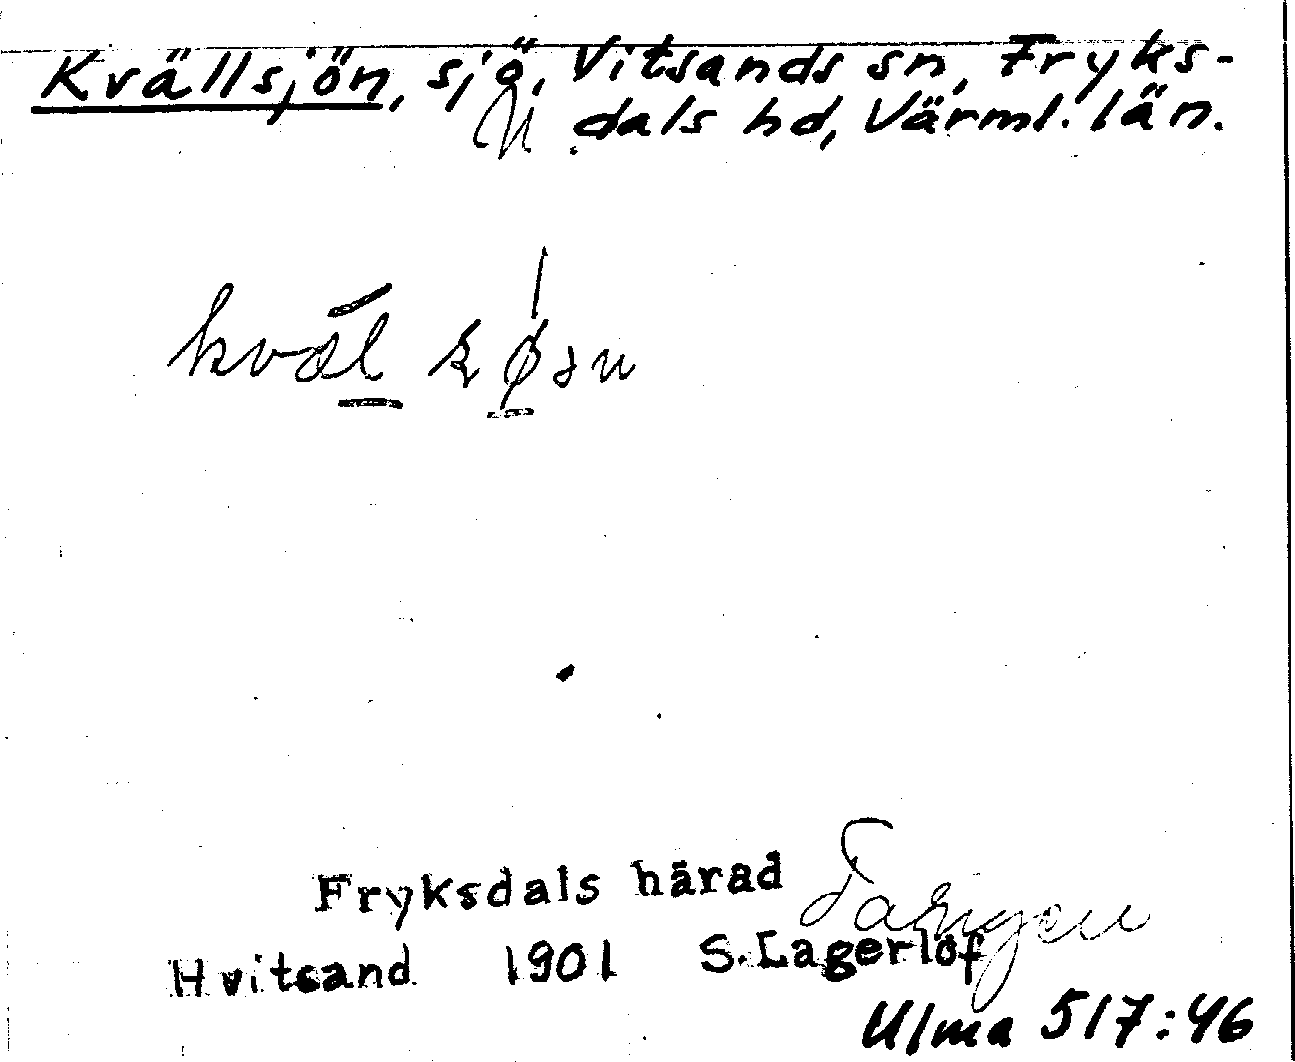 Kvällsjön, sjö, Vitsands sn, Fryks-
dals hd, Värml. län.
Fryksdals härad
Hvitsand 1901 S. Lagerlöf
Ulma 517:46